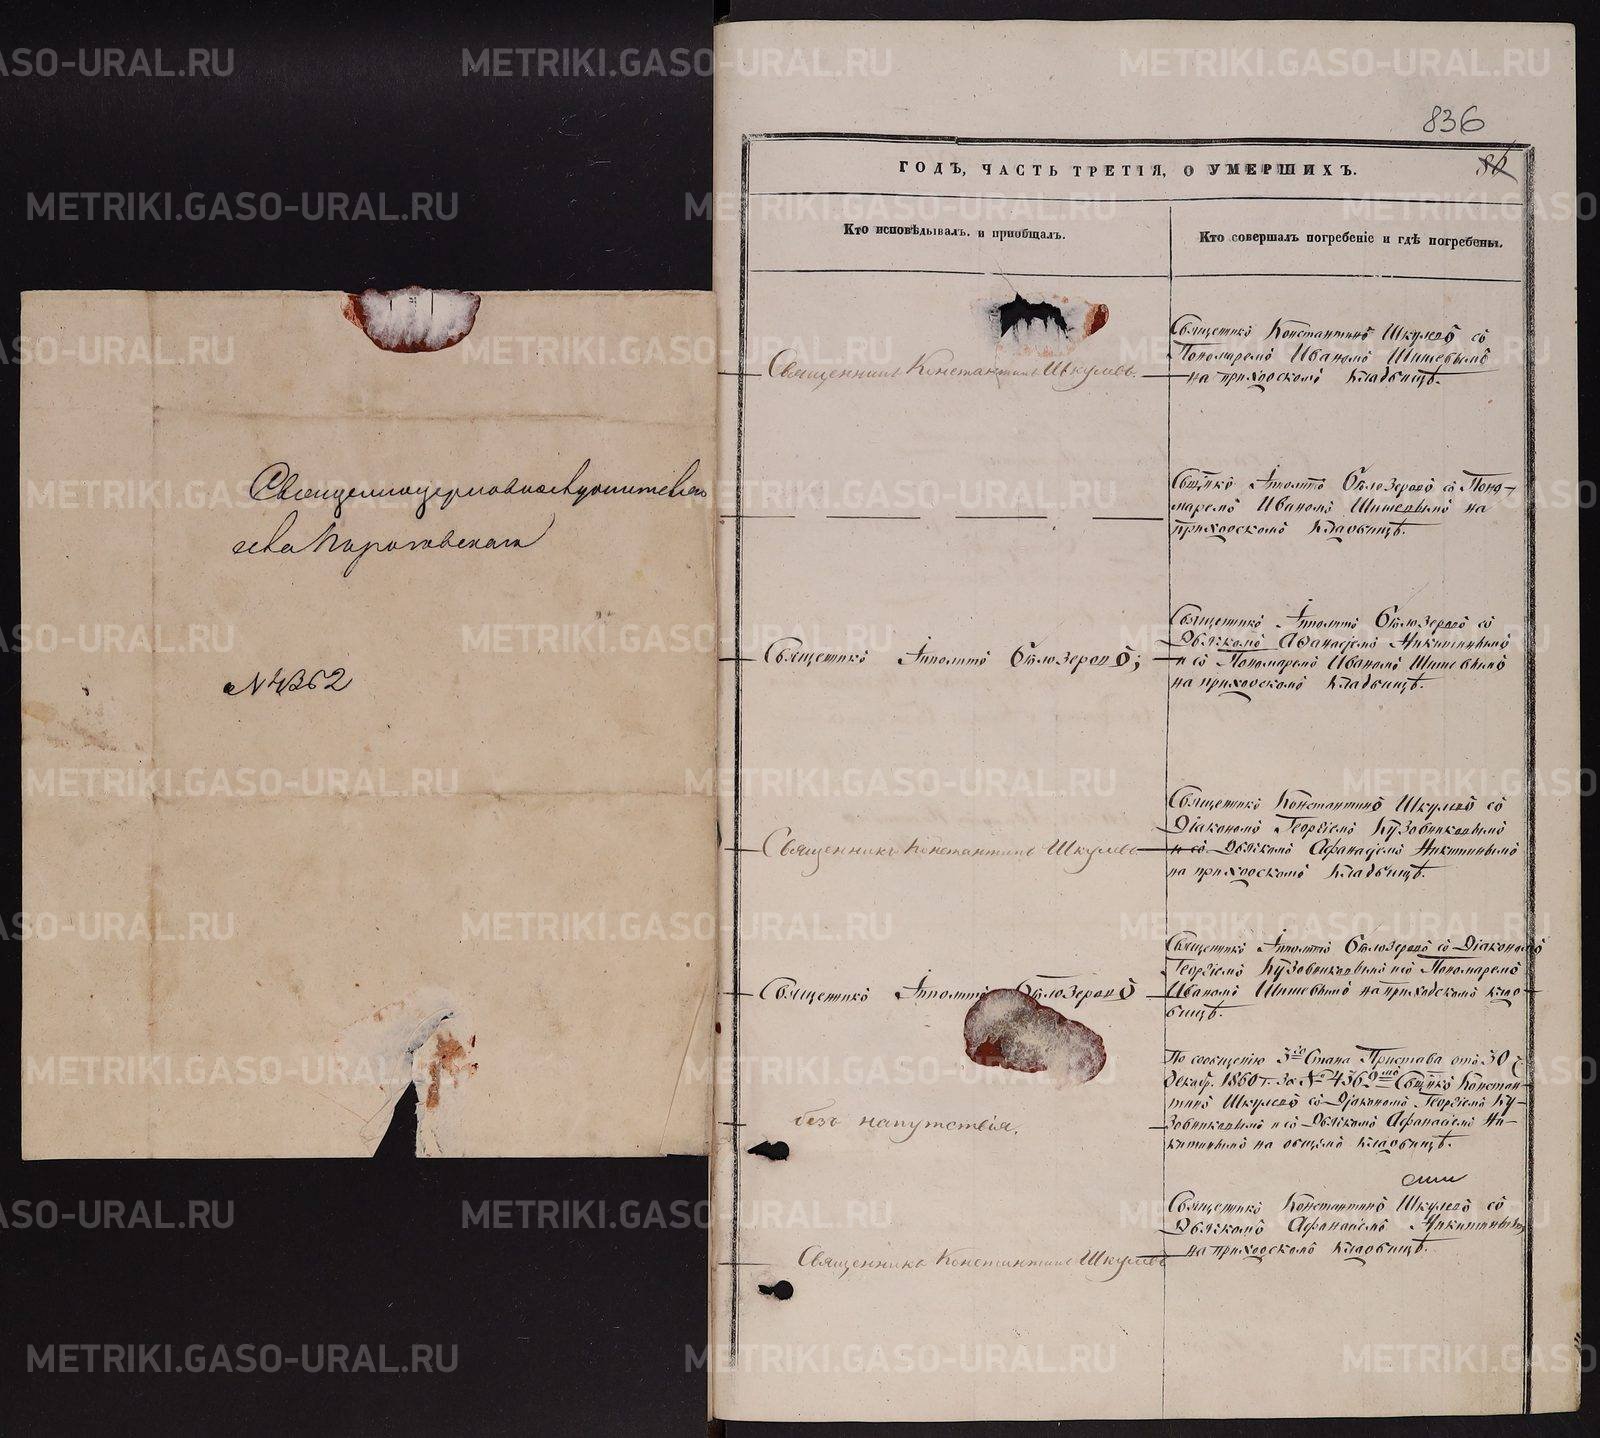 Священноцерковнослужителямъ
села
№ 4362
836
86
ГОДЪ, ЧАСТЬ ТРЕТІЯ, О УМЕРШИХЪ.
Кто исповѣдывалъ и пріобщалъ.
Кто совершалъ погребеніе и гдѣ погребены.
Священникъ Константинъ Шкулевъ.
Священникъ Константинъ Шкулевъ со
Пономаремъ Иваномъ Шишевымъ
на приходскомъ кладбищѣ.
Свщнкъ Іпполитъ Бѣлозеровъ со Поно-
маремъ Иваномъ Шишевымъ на
приходскомъ кладбищѣ.
Священникъ Іпполитъ Бѣлозеровъ;
Священникъ Іпполитъ Бѣлозеровъ со
Дьячкомъ Афанасіемъ Никитинымъ
и со Пономаремъ Иваномъ Шишевымъ
на приходскомъ кладбищѣ.
Священникъ Константинъ Шкулевъ
Священникъ Константинъ Шкулевъ со
Діакономъ Георгіемъ Кузовниковымъ
и со Дьячкомъ Афанасіемъ Никитинымъ
на приходскомъ кладбищѣ.
Священникъ Іпполитъ Бѣлозеровъ
Священникъ Іпполитъ Бѣлозеровъ со Діакономъ
Георгіемъ Кузовниковымъ и со Пономаремъ
Иваномъ Шишевымъ на приходскомъ клад-
бищѣ.
безъ напутствія.
По сообщенію 3го Стана Пристава отъ 30
Декаб. 1860 г. за № 4369мъ Свщнкъ Констан-
тинъ Шкулевъ со Діакономъ Георгіемъ Ку-
зовниковымъ и со Дьячкомъ Афанасіемъ Ни-
китинымъ на общемъ кладбищѣ.
Священникъ Константинъ Шкулевъ
Священникъ Константинъ Шкулевъ со
Дьячкомъ Афанасіемъ Никитинымъ
на приходскомъ кладбищѣ.
METRIKI.GASO-URAL.RU